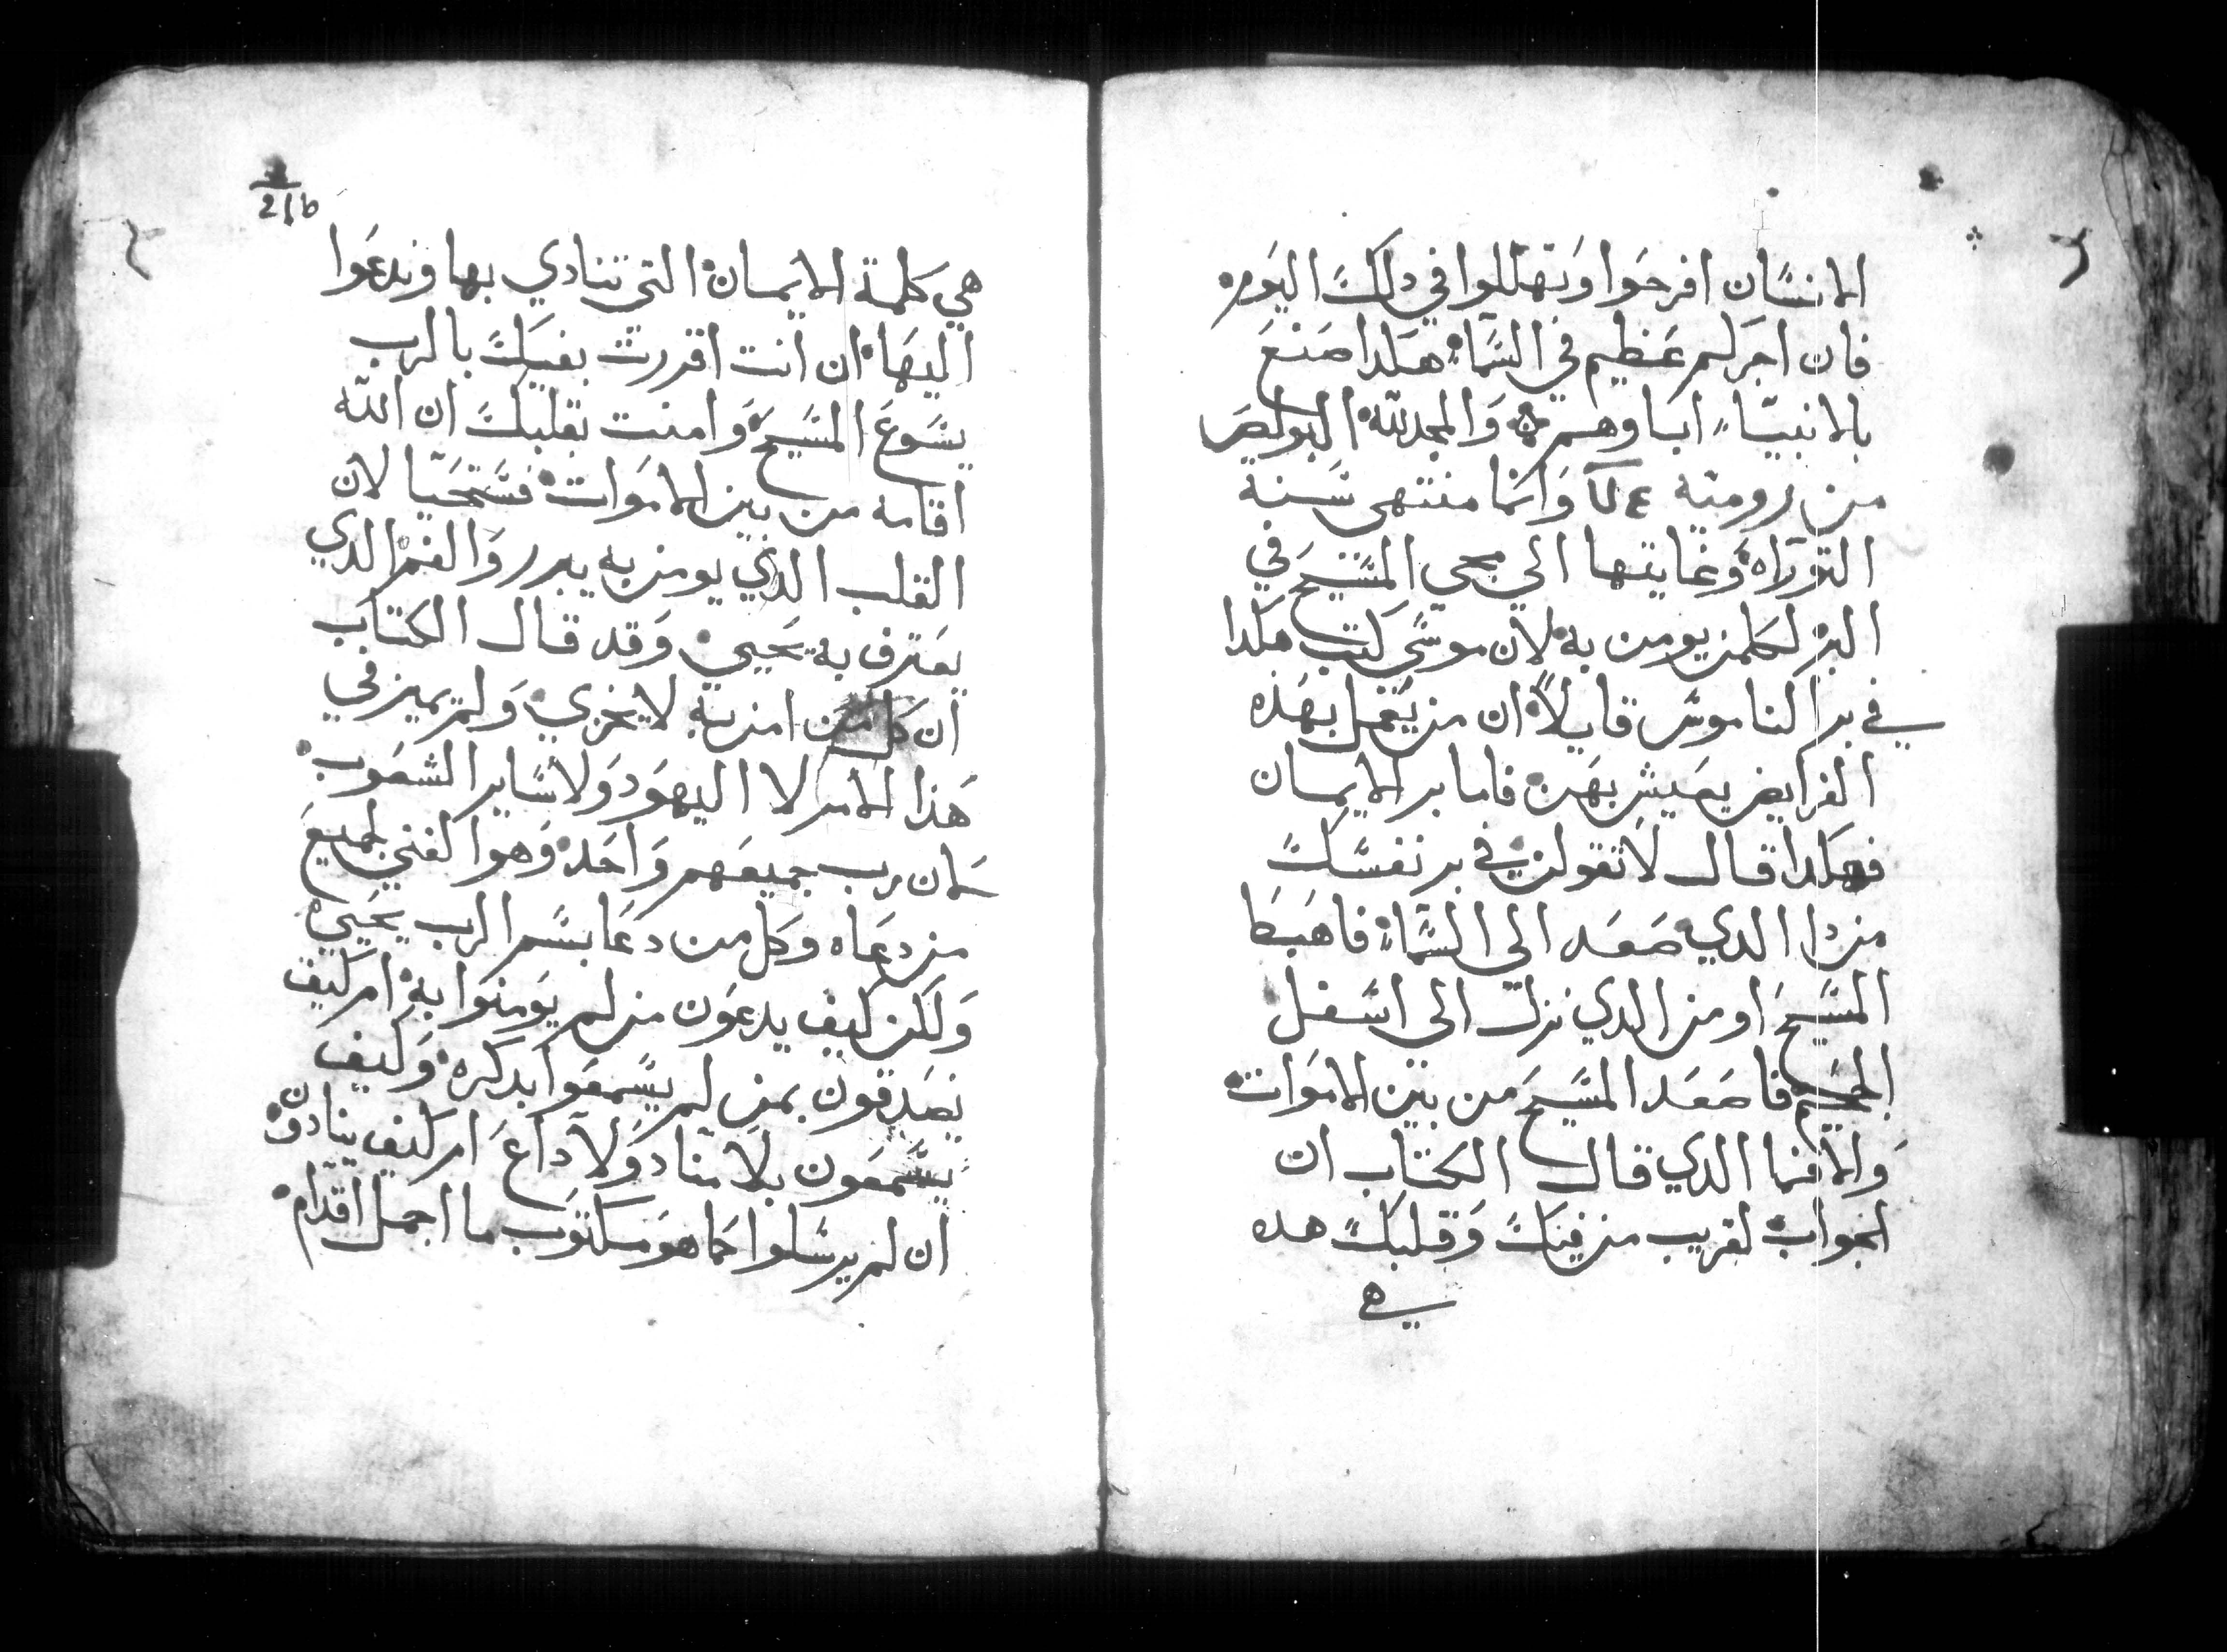 الانسان افرحوا وتهللوا في دلك اليوم
فان اجركم عظيم في السماء هكدا صنع
بالانبياء اباوهم والمجد لله البولص
من رومية وانما منتهى سنة
التوراه وغايتها الي مجي المسيح في
البر لكلمن يومن به لان موسي كتب هكدا
في بر الناموس قايلا ان من يعمل بهده
الفرايض يعيش بهن فاما بر الايمان
فهكدا قال لا تقولن في بر نفسك
من دا الدي صعد الى السماء فاهبط
المسيح او من الدي نزل الى اسفل
الجحيم فاصعد المسيح من بين الاموات
والا فما الدي قال الكتاب ان
الجواب لقريب من فيك وقلبك هده
هي
216
هي كلمة الايمان التي ننادي بها وندعوا
اليها ان انت اقررت بفيك بالرب
يسوع المسيح وامنت بقلبك ان الله
اقامه من بين الاموات فستحيا لان
القلب الدي يومن به يبرر والفم الدي
يعترف به يحيي وقد قال الكتاب
ان كل من امن به لا يخزي ولم يميز في
هذا الامر لا اليهود ولا ساير الشعوب
لان رب جميعهم واحد وهو الغني لجميع
من دعاه وكل من دعا بسم الرب يحيي
ولكن كيف يدعون من لم يومنوا به ام كيف
يصدقون بمن لم يسمعوا بدكره وكيف
يسمعون بلا مناد ولا داع ام كيف ينادون
ان لم يرسلوا كما هو مكتوب ما اجمل اقدام